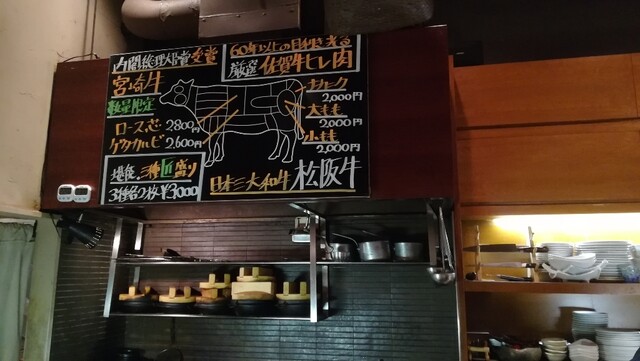 内閣総理大臣賞受賞
宮崎牛
数量限定
ロース芯 2800円
ゲタカルビ 2,600円
堪後.三種匠盛り
3種各2枚 ¥3000
60年以上の目利き光る
厳選 佐賀牛ヒレ肉
2,000円
大もも
2,000円
小もも
2,000円
日本三大和牛 松阪牛